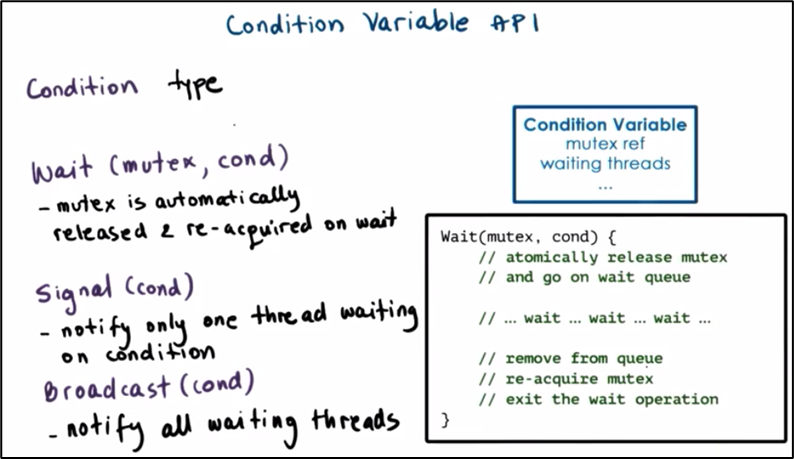 Condition Variable API
Condition type
Wait (mutex, cond)
- mutex is automatically
released & re-acquired on wait
Signal (cond)
- notify only one thread waiting
on condition
Broadcast (cond)
- notify all waiting threads
Condition Variable
mutex ref
waiting threads
...
Wait(mutex, cond) {
// atomically release mutex
// and go on wait queue
// ... wait ... wait ... wait ...
// remove from queue
// re-acquire mutex
// exit the wait operation
}